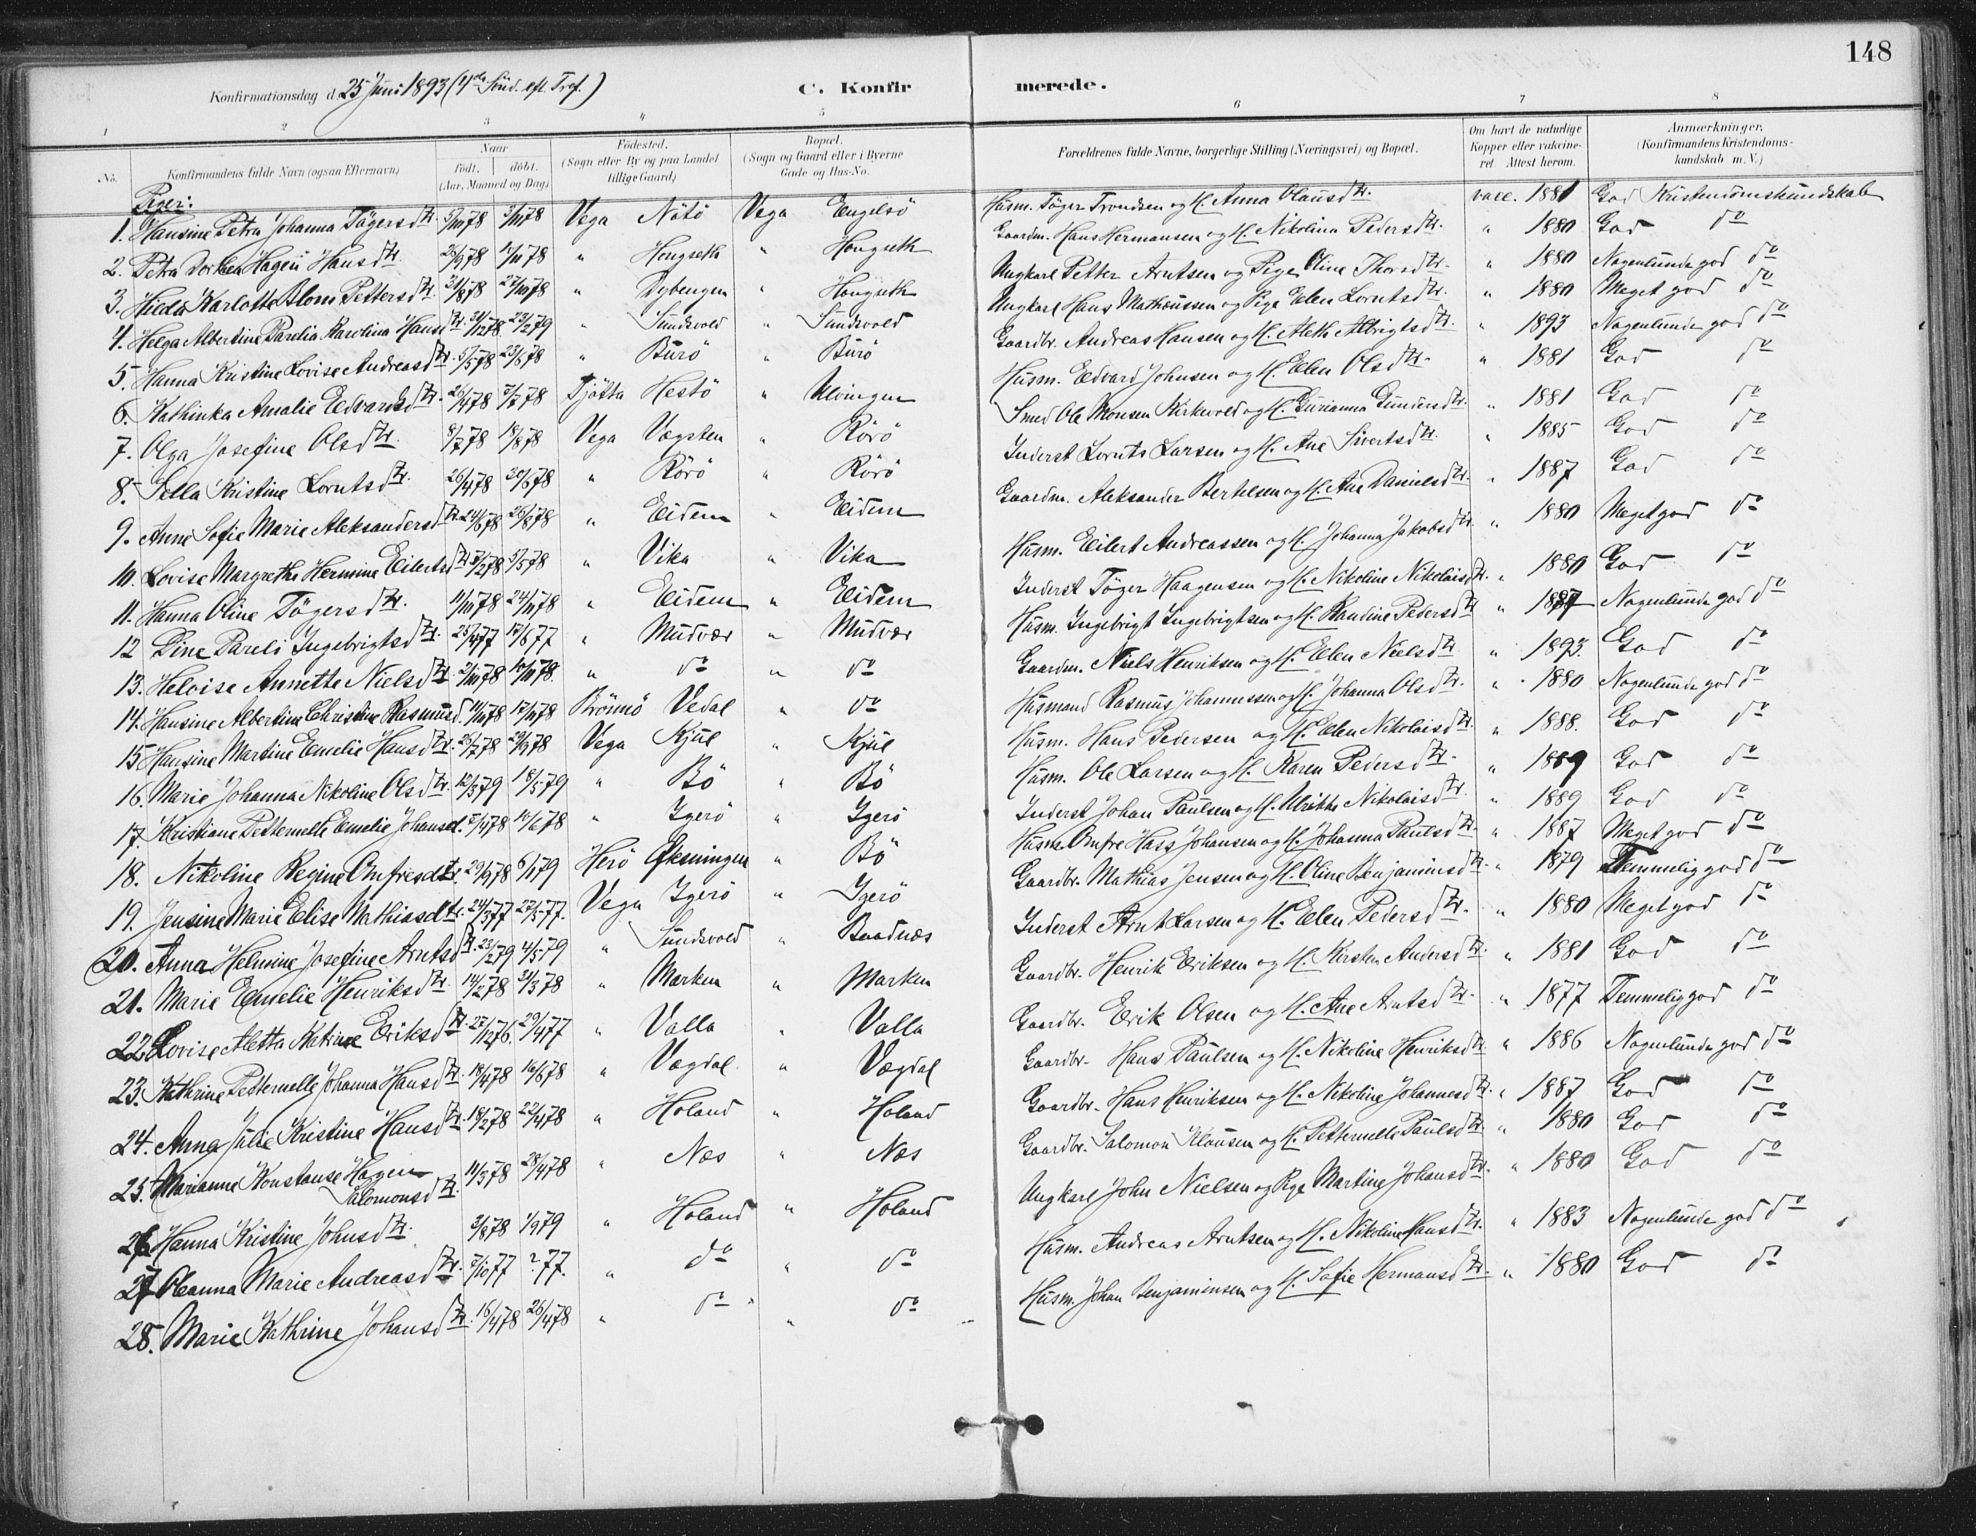 148
Konfirmationsdag d. 25 Juni 1893 (4de Sönd. eft. Tref.)
C. Konfirmerede.
1 2 3 4 5 6 7 8
No. Konfirmandens fulde Navn (ogsaa Efternavn) Naar født, døbt. (Aar, Maaned og Dag) Fødested. (Sogn eller By og paa Landet tillige Gaard) Bopæl. (Sogn og Gaard eller i Byerne Gade og Hus-No. Forældrenes fulde Navne, borgerlige Stilling (Næringsvei) og Bopæl. Om havt de naturlige Kopper eller vakcineret. Attest herom. Anmærkninger. (Konfirmandens Kristendomskundskab m. V.)
Piger:
1. Hansine Petra Johanna Tögersdtr. 5/10 78 3/11 78 Vega Nötö Vega Engelsö Husm. Töger Trondsen og H. Anna Olausdtr. vacc. 1881 God Kristendomskundskab
2. Petra Dorthea Hagen Hansdtr. 26/9 78 10/11 78 " Hongseth " Hongseth Gaardm. Hans Hermansen og H. Nikolina Pedersdtr. " 1880 God do
3. Hilda Karlotte Blom Pettersdtr. 31/8 78 27/10 78 " Dybengen " Hongseth Ungkarl Petter Arntsen og Pige Oline Thorsdtr. " 1880 Nogenlunde god do
4. Helga Albertine Parelia Karolina Hansdtr. 31/12 78 23/2 79 " Sundsvold " Sundsvold Ungkarl Hans Matheussen og Pige Elen Lorntsdtr. " 1880 Meget god do
5. Hanna Kristine Lovise Andreasdtr. 5/5 78 23/6 78 " Burö " Burö Gaardbr. Andreas Hansen og H. Aleth Albrigtsdtr. " 1893 Nogenlunde god do
6. Kathinka Amalie Edvardsdtr. 26/4 78 7/7 78 Tjötta Hestö " Ulvingen Husm. Edvard Johnsen og H. Elen Olsdtr. " 1881 God do
7. Olga Josefine Olsdtr. 8/7 78 18/8 78 Vega Vegsten " Rörö Smed Ole Monsen Kirkvold og H. Gurianna Gundersdtr. " 1881 God do
8. Sella Kristine Lorntsdtr. 26/4 78 30/6 78 " Rörö " Rörö Inderst Lornts Larsen og H. Ane Sivertsdtr. " 1885 God do
9. Anne Sofie Marie Aleksandersdtr. 24/6 78 26/8 78 " Eidem " Eidem Gaardm. Aleksander Bertelsen og H. Ane Danielsdtr. " 1887 God do
10. Lovise Margrethe Hermine Eilertsdtr. 3/2 78 5/5 78 " Vika " Vika Husm. Eilert Andreassen og H. Johanna Jakobsdtr. " 1880 Meget god do
11. Hanna Oline Tögersdtr. 11/10 78 24/11 78 " Eidem " Eidem Inderst Töger Haagensen og H. Nikoline Nikolaisdtr. " 1880 God do
12 Dine Pareli Ingebrigtsdtr. 25/4 77 17/6 77 " Mudvær " Mudvær Husm. Ingebrigt Ingebrigtsen og H. Randine Pedersdtr. " 1887 Nogenlunde god do
13. Heloise Annette Nielsdtr. 2/10 78 10/11 78. " do " do Gaardm. Niels Henriksen og H. Elen Nielsdtr. " 1893. God do
14. Hansine Albertine Christine Rasmusd. 14/10 78 17/11 78 Brönnö Vedal " do Husmand Rasmus Johannessen og H. Johanna Olsdtr. " 1880 Nogenlunde god do
15. Hansine Martine Emelie Hansdtr. 26/7 78 29/9 78 Vega Kjul " Kjul Husm. Hans Pedersen og H. Elen Nikolaisdtr. " 1888. God do
16. Marie Johanna Nikoline Olsdtr. 12/3 79 18/5 79 " Bö " Bö Husm. Ole Larsen og H. Karen Pedersdtr. " 1889 God do
17. Kristiane Petternelle Emelie Johansd. 2/4 78 10/6 78 " Igerö " Igerö Inderst Johan Paulsen og H. Ulrikke Nikolaisdtr. " 1889 God do
18. Nikoline Regine Onfresdtr. 29/9 78 6/1 79 Herö Öksningen " Bö Husm. Onfre Hass Johansen og H. Johanna Paulsdtr. " 1887 Meget god do
19. Jensine Marie Elise Mathisdtr. 24/3 77 27/5 77. Vega Igerö " Igerö Gaardbr. Mathias Jensen og H. Oline Benjaminsdtr. " 1879 Temmelig god do
20. Anna Helmine Josefine Arntsdtr. 23/2 79 4/5 79 " Sundsvold " Baadnæs Inderst Arnt Larsen og H. Elen Pedersdtr. " 1880 Meget god do
21. Marie Emelie Henriksdtr. 14/2 78 31/3 78 " Marken " Marken Gaardbr. Henrik Eriksen og H. Kirsten Andersdtr. " 1881 God do
22. Lovise Aletta Katrine Eriksdtr. 27/12 76. 29/4 77 " Valla " Valla Gaardbr. Erik Olsen og H. Ane Arntsdtr. " 1877 Temmelig god do
23. Kathrine Petternelle Johanna Hansdtr. 18/4 78 16/6 78 " Vægdal " Vægdal Gaardbr. Hans Paulsen og H. Nikoline Henriksdtr. " 1886 Nogenlunde god do
24. Anna Julie Kristine Hansdtr. 18/2 78 22/4 78 " Holand " Holand Gaardbr. Hans Henriksen og H. Nikoline Johannesdtr. " 1887 God do
25. Marianne Konstanse Hagen Salomonsdtr. 11/3 78 28/4 78 " Næs " Næs Gaardbr. Salomon Klausen og H. Petternelle Paulsdtr. " 1880 God do
26 Hanna Kristine Johnsdtr. 3/8 78 1/9 79 " Holand " Holand Ungkarl John Nielsen og Pige Martine Johansdtr. " 1880 God do
27 Oleanna Marie Andreasdtr. 7/10 77 ? 77. " do " do Husm. Andreas Arntsen og H. Nikoline Hansdtr. " 1883 Nogenlunde god do
28. Marie Kathrine Johansdtr. 16/4 78 26/4 78 " do " do Husm. Johan Benjaminsen og H. Sofie Hermansdtr. " 1880 God do